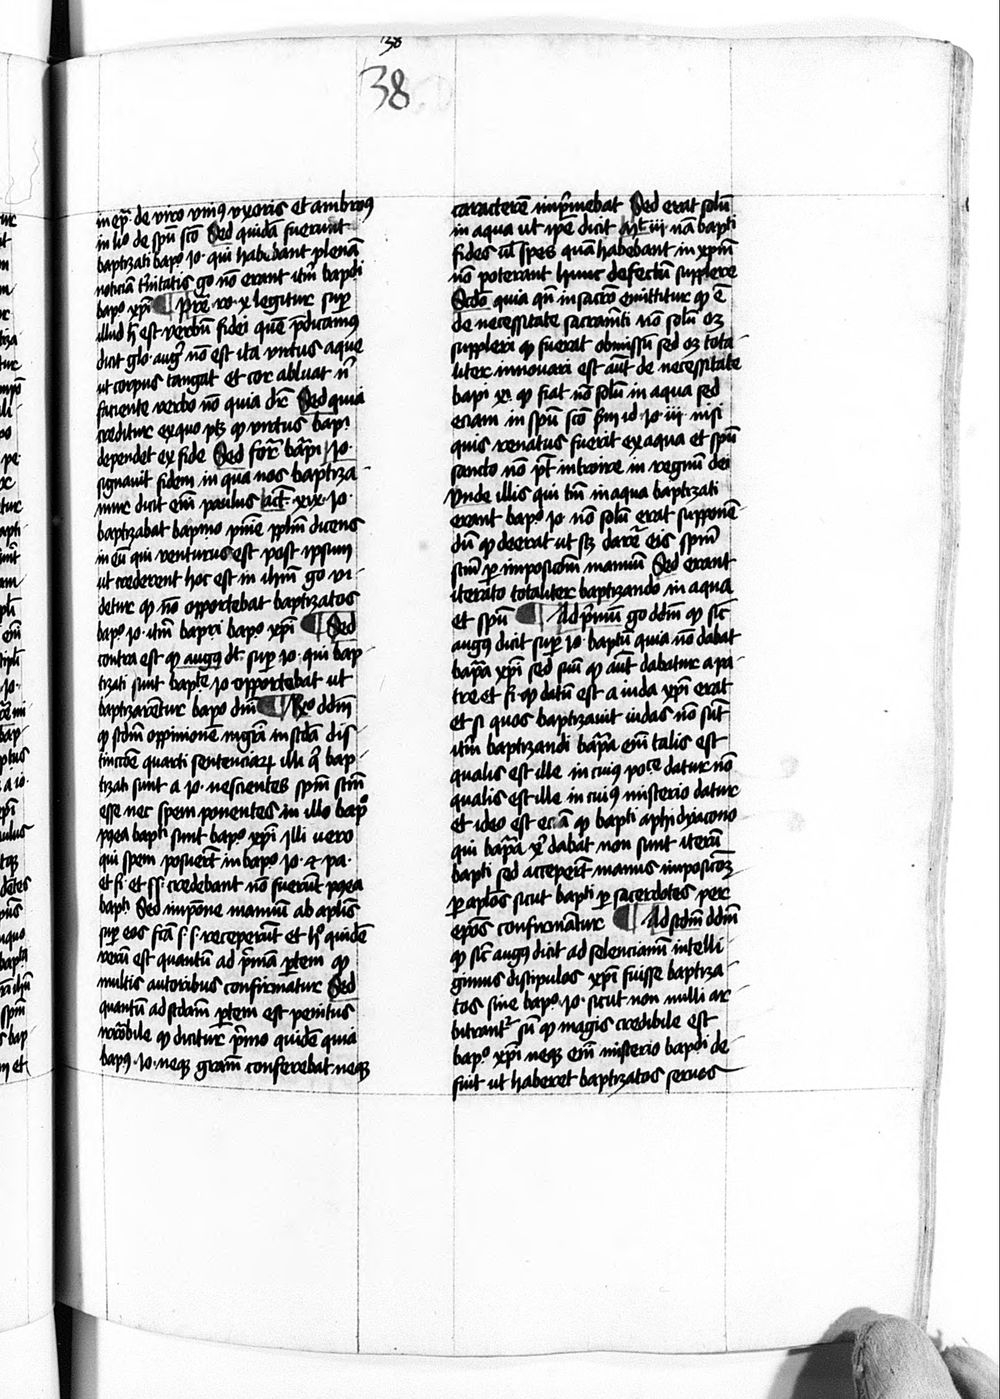 38
38
in ep̄. de viro vniꝰ vxoris et ambrosꝰ
in lib̄o de spū scō Sed quidā fuerunt
baptizati bapᵒ Io· qui habebant plenā
noticiā tⁱnitatis go nō erant itm̄ bapdi
bapᵒ xp̄i ¶ Pret̄ ro· x legitur sup̄
illud h̄ est verbū fidei quē p̄dicamꝰ
dicit glo· augꝰ nō est ita virtus aque
ut corpus tangat et cor abluat nⁱ
faciente verbo nō quia dr̄ Sed quia
creditur ex quo ptꝫ ꝙ virtus bap̄i
dependet ex fide Sed for̄ bap̄i Io·
signauit fidem in qua nos baptiza
mur dicit em̄ paulus act̄· xix· Io·
baptizabat bapmo pnīe pp̄lm dicens
in eū qui venturus est post ipsum
ut crederent hoc est in ihm̄ go vi
detur ꝙ nō opportebat baptizatos
bapᵒ Io· itm̄ bap̄ri bapᵒ xp̄i ¶ Sed
contra est ꝙ augꝰ dt̄ sup̄ Io· qui bap
tizati sunt bapte Io opportebat ut
baptizarentur bapᵒ dn̄i ¶ Rᵒ ddm̄
ꝙ scdm̄ oppinionē mgr̄i in scd̄a dis
tinctōe quarti sentenciaꝝ illi qⁱ bap
tizati sunt a Io· nescientes spm̄ scm̄
esse nec spem ponentes in illo bapᵒ
p9ea bapti sunt bapᵒ xp̄i Illi vero
qui spem posuerūt in bapᵒ Io· ⁊ pa·
et fi· et ss̄· credebant nō fuerūt p9ea
bapti Sed impōne manuū ab aplis
sup̄ eos fc̄a s̄ s̄ receperūt et hᵒ quidē
verū est quantū ad p̄mā p̄tem ꝙ
multis autoribus confirmatur Sed
quantū ad scdam̄ p̄tem est penitus
irrōnabile ꝙ dicitur p̄imo quidē quia
bapꝰ· Io· neqꝫ gram̄ conferebat neqꝫ
caracterē imp̄imebat Sed erat solū
in aqua ut ip̄e dicit mt̄ iii· nā bapti
fides ul̄ spes quā habebant in xpm̄
nō poterant hunc defectū supplere
Scdō quia qn̄ in sacrō omittitur ꝙ ē
de necessitate sacramēti nō solū oꝫ
suppleri ꝙ fuerat obmissū sed oꝫ tota
liter innouari est aūt de necessitate
bap̄i xⁱ· ꝙ fiat nō solū in aqua sed
eciam in spū scō s̄m id· Io· iii· nisi
quis renatus fuerit ex aqua et spū
sancto nō pt̄ introire in regnū dei
Vnde illis qui tm̄ in aqua baptizati
erant bapᵒ Io· nō solū erat supponē
dū ꝙ deerat ut sꝫ daret̄ eis spm̄
scm̄ p̄ imposicōm manuū Sed erant
iterato totaliter baptizandi in aqua
et spū ¶ Ad p̄imū go ddm̄ ꝙ sic̄
augꝰ dicit sup̄ Io· baptū quia nō dabat
bap̄a xp̄i sed suū ꝙ aūt dabatur a pa
tre et si ꝙ datū est a iuda xp̄i erat
et si quos baptizauit iudas nō sūt
itm̄ baptizandi bap̄a em̄ talis est
qualis est ille in cuiꝰ potē datur nō
qualis est ille in cuiꝰ misterio datur
et ideo est eciā ꝙ bapti a phi dyacono
qui bap̄a xⁱ dabat non sunt iterū
bapti sed acceperūt manus imposicōꝫ
p̄ aplōs sicut bapti p̄ sacerdotes per
epos̄ confirmātur ¶ Ad scdm̄ ddm̄
ꝙ sic̄ augꝰ dicit ad selencianū intelli
gimus discipulos xp̄i fuisse baptiza
tos siue bapᵒ Io· sicut non nulli ar
bitrantʳ siū ꝙ magis credibile est
bapᵒ xp̄i neqꝫ em̄ misterio bapdi de
fuit ut haberet baptizatos seruos